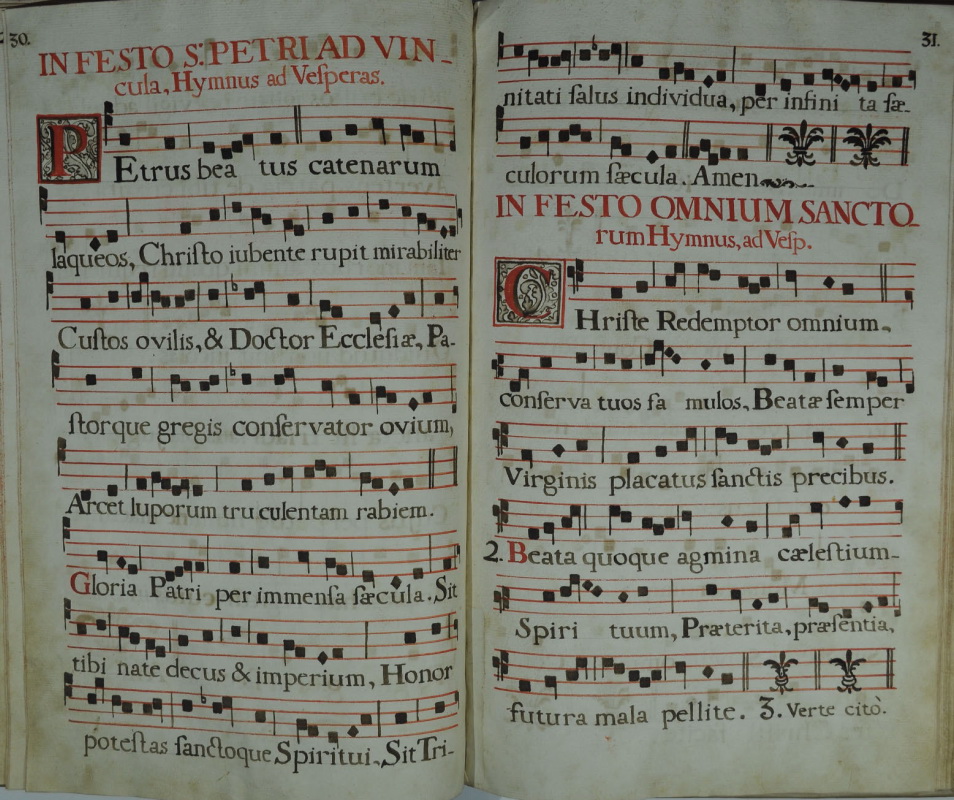 30.
IN FESTO S: PETRI AD VIN-
cula, Hymnus ad Veſperas.
PEtrus bea tus catenarum
laqueos, Chriſto iubente rupit mirabiliter
Cuſtos ovilis, & Doctor Eccleſiæ, Pa-
ſtorque gregis conſervator ovium,
Arcet luporum tru culentam rabiem.
Gloria Patri per immenſa ſæcula. Sit
tibi nate decus & imperium, Honor
poteſtas ſanctoque Spiritui, Sit Tri-
31.
nitati ſalus individua, per infini ta ſæ-
culorum ſæcula. Amen
IN FESTO OMNIUM SANCTO-
rum Hymnus, ad Veſp.
CHriſte Redemptor omnium,
conſerva tuos fa mulos, Beatæ ſemper
Virginis placatus ſanctis precibus.
2. Beata quoque agmina cæleſtium-
Spiri tuum, Præterita, præſentia,
futura mala pellite. 3. Verte citò.